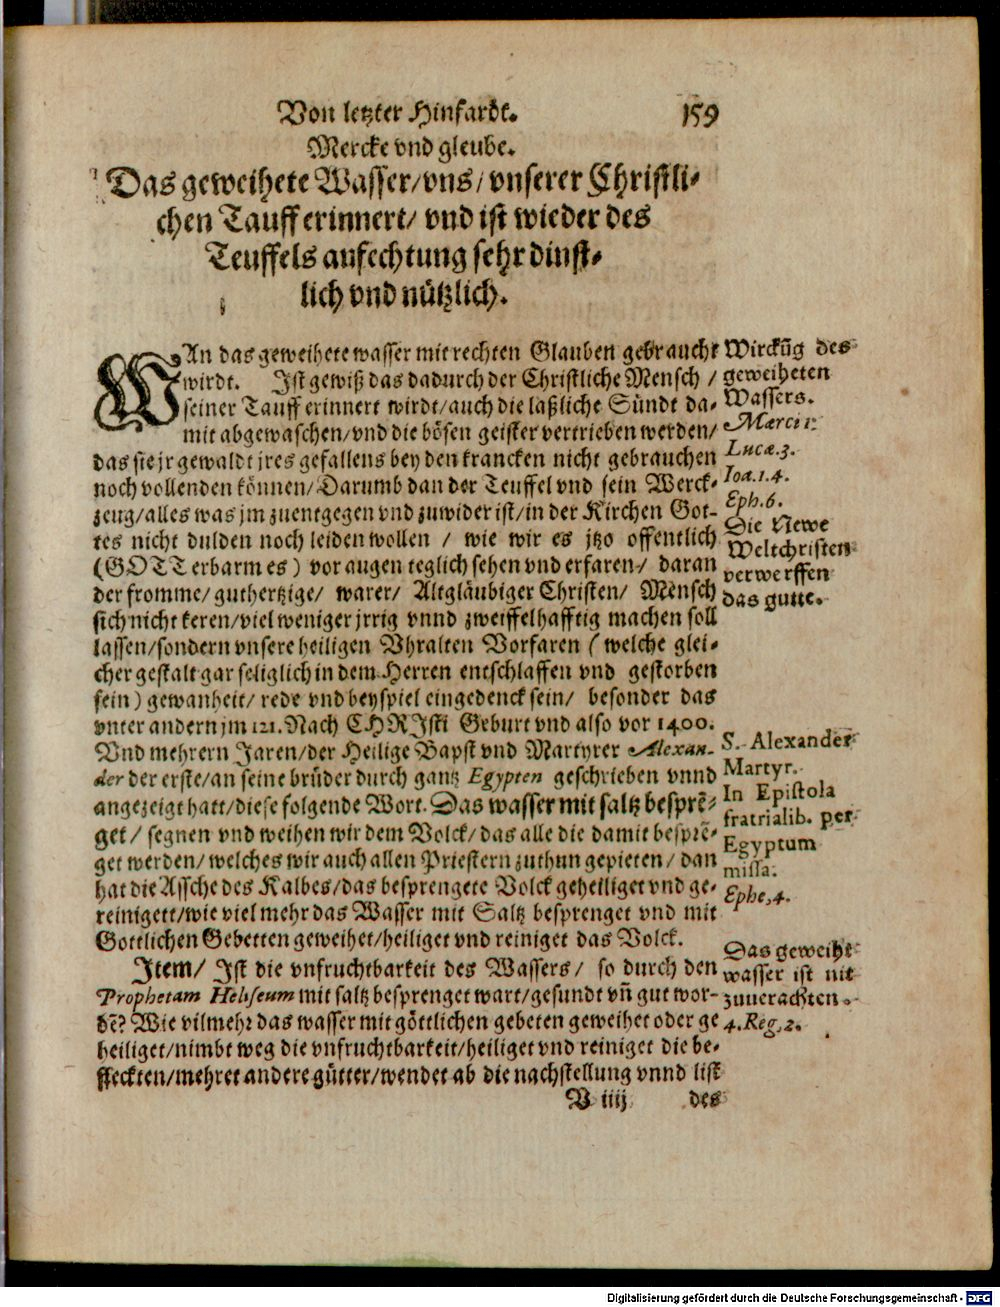 Von letzter Hinfardt. 159
Mercke vnd gleube.
Das geweihete Wasser/vns/vnserer Christli-
chen Tauff erinnert/ vnd ist wieder des
Teuffels anfechtung sehr dinst-
lich vnd nützlich.
WAn das geweihete wasser mit rechten Glauben gebraucht
wirdt. Ist gewiß das dadurch der Christliche Mensch /
seiner Tauff erinnert wirdt/auch die laßliche Sündt da-
mit abgewaschen/vnd die bösen geister vertrieben werden/
das sie jr gewaldt jres gefallens bey den krancken nicht gebrauchen
noch vollenden können/Darumb dan der Teuffel vnd sein Werck-
zeug/alles was jm zuentgegen vnd zuwider ist/in der Kirchen Got-
tes nicht dulden noch leiden wollen / wie wir es jtzo offentlich
(GOTT erbarm es) vor augen teglich sehen vnd erfaren/ daran
der fromme/ guthertzige/ warer/ Altgläubiger Christen/ Mensch
sich nicht keren/viel weniger jrrig vnnd zweiffelhafftig machen soll
lassen/sondern vnsere heiligen Vhralten Vorfaren (welche glei-
cher gestalt gar seliglich in dem Herren entschlaffen vnd gestorben
sein) gewanheit/ rede vnd beyspiel eingedenck sein/ besonder das
vnter andern jm 121. Nach CHRIsti Geburt vnd also vor 1400.
Vnd mehrern Jaren/der Heilige Bapst vnd Martyrer Alexan-
der der erste/an seine brüder durch gantz Egypten geschrieben vnnd
angezeigt hatt/diese folgende Wort. Das wasser mit saltz besprẽ-
get/ segnen vnd weihen wir dem Volck/das alle die damit besprẽ-
get werden/welches wir auch allen Priestern zuthun gepieten/ dan
hat die Assche des Kalbes/das besprengete Volck geheiliget vnd ge-
reinigett/wie viel mehr das Wasser mit Saltz besprenget vnd mit
Gottlichen Gebetten geweihet/heiliget vnd reiniget das Volck.
Item/ Ist die vnfruchtbarkeit des Wassers/ so durch den
Prophetam Heliseum mit saltz besprenget wart/gesundt vñ gut wor-
dẽ? Wie vilmehr das wasser mit göttlichen gebeten geweihet oder ge
heiliget/nimbt weg die vnfruchtbarkeit/heiliget vnd reiniget die be-
fleckten/mehret andere gütter/wendet ab die nachstellung vnnd list
V iiij des
Wirckũg des
geweiheten
Wassers.
Marci 1.
Lucæ. 3.
Ioa. 1. 4.
Eph. 6.
Die Newe
Weltchristen
verwerffen
das gutte.
S. Alexander
Martyr.
In Epistola
fratrialib. per
Egyptum
missa.
Ephe, 4.
Das geweiht
wasser ist nit
zuuerachten.
4. Reg, 2.
Digitalisierung gefördert durch die Deutsche Forschungsgemeinschaft - DFG